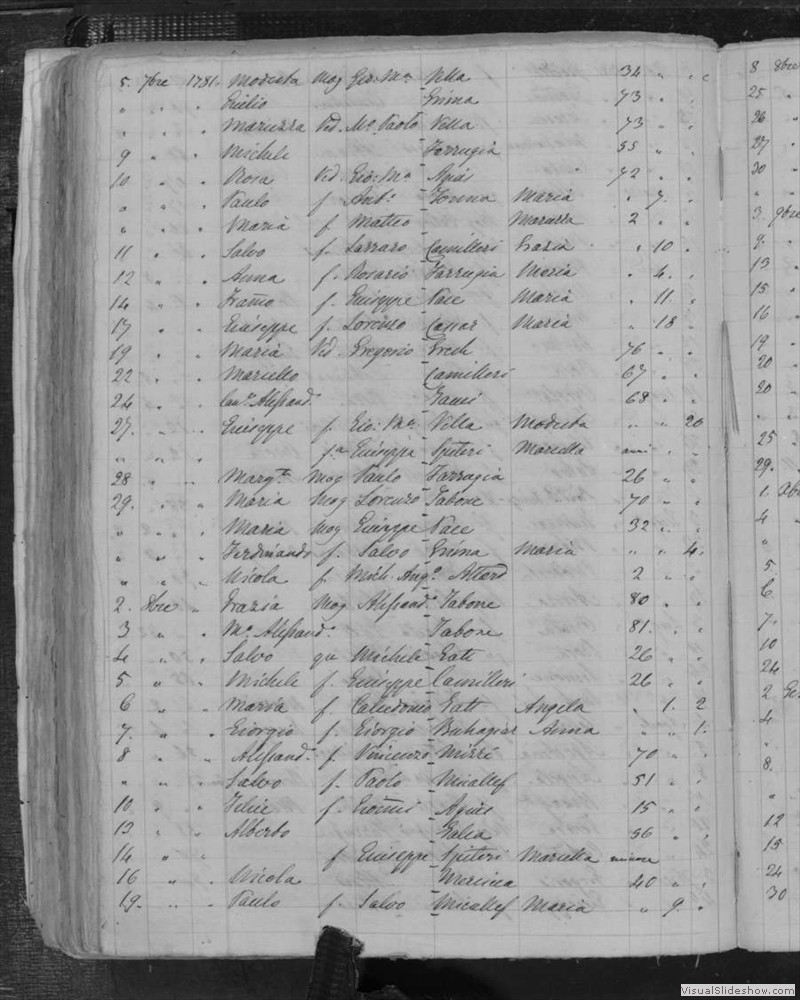 5. 7bre 1781. Modesta mog Gio: Ma Vella 34 " "
" " " Giulio Grima 73 " "
" " " Maruzza Ved. Mo Paolo Vella 73 " "
9 " " Michele Farrugia 55 " "
10 " " Rosa Ved. Gio: Ma Agiùs 72 " "
" " " Paulo f Anto Fonna Maria " 7. "
" " " Maria f Matteo Marassa 2 " "
11 " " Salvo f. Lazzaro Camilleri Grazia " 10 "
12 " " Anna f. Rosario Farrugia Maria " 4. "
14 " " f. Giuseppe Pace Maria " 11. "
17 " " Giuseppe f. Lorenzo Cassar Maria " 18 "
19 " " Maria Ved. Gregorio Grech 76 " "
22 " " Marcello Camilleri 67 " "
24 " " Alessand. 68 " "
27. " " Giuseppe f. Gio: Ma Vella Modesta " " 20
" " " fa Giuseppe Spiteri Mariella
28 " " Margta Mog Paulo Farrugia 26 " "
29. " " Maria Mog Lorenzo Tabone 70 " "
" " " Maria Mog Giuseppe Pace 32 " "
" " " Ferdinando f. Salvo Grima Maria " " 4.
" " " Nicola f. Mich. Ango. Attard 2 " "
2. 8bre " Grazia Mog Alessand. Tabone 80 " "
3 " " Mo Alessand. Tabone 81. " "
4 " " Salvo qu Michele Gatt 26 " "
5 " " Michele f. Giuseppe Camilleri 26 " "
6 " " Maria f. Calcedonio Gatt Angela " 1. 2
7. " " Giorgio f. Giorgio Buhagiar Anna " " 1.
8 " " Alessand. f. Vincenzo Mizzi 70 " "
" " " Salvo f. Paolo Micallef 51 " "
10 " " Felice f. Gioanni Agiùs 15 " "
13 " " Alberto Galea 56 " "
14 " " f Giuseppe Spiteri Mariella minore
16 " " Nicola Mercieca 40 " "
19. " " Paulo f. Salvo Micallef Maria " 9. "
8 8bre
25
26
27
30
3. 9bre
9.
13
15
16
19
20
20
25
29.
1.
4
5.
6.
7.
10
24
2
4
8.
12
15
24
30
VisualSlideshow.com